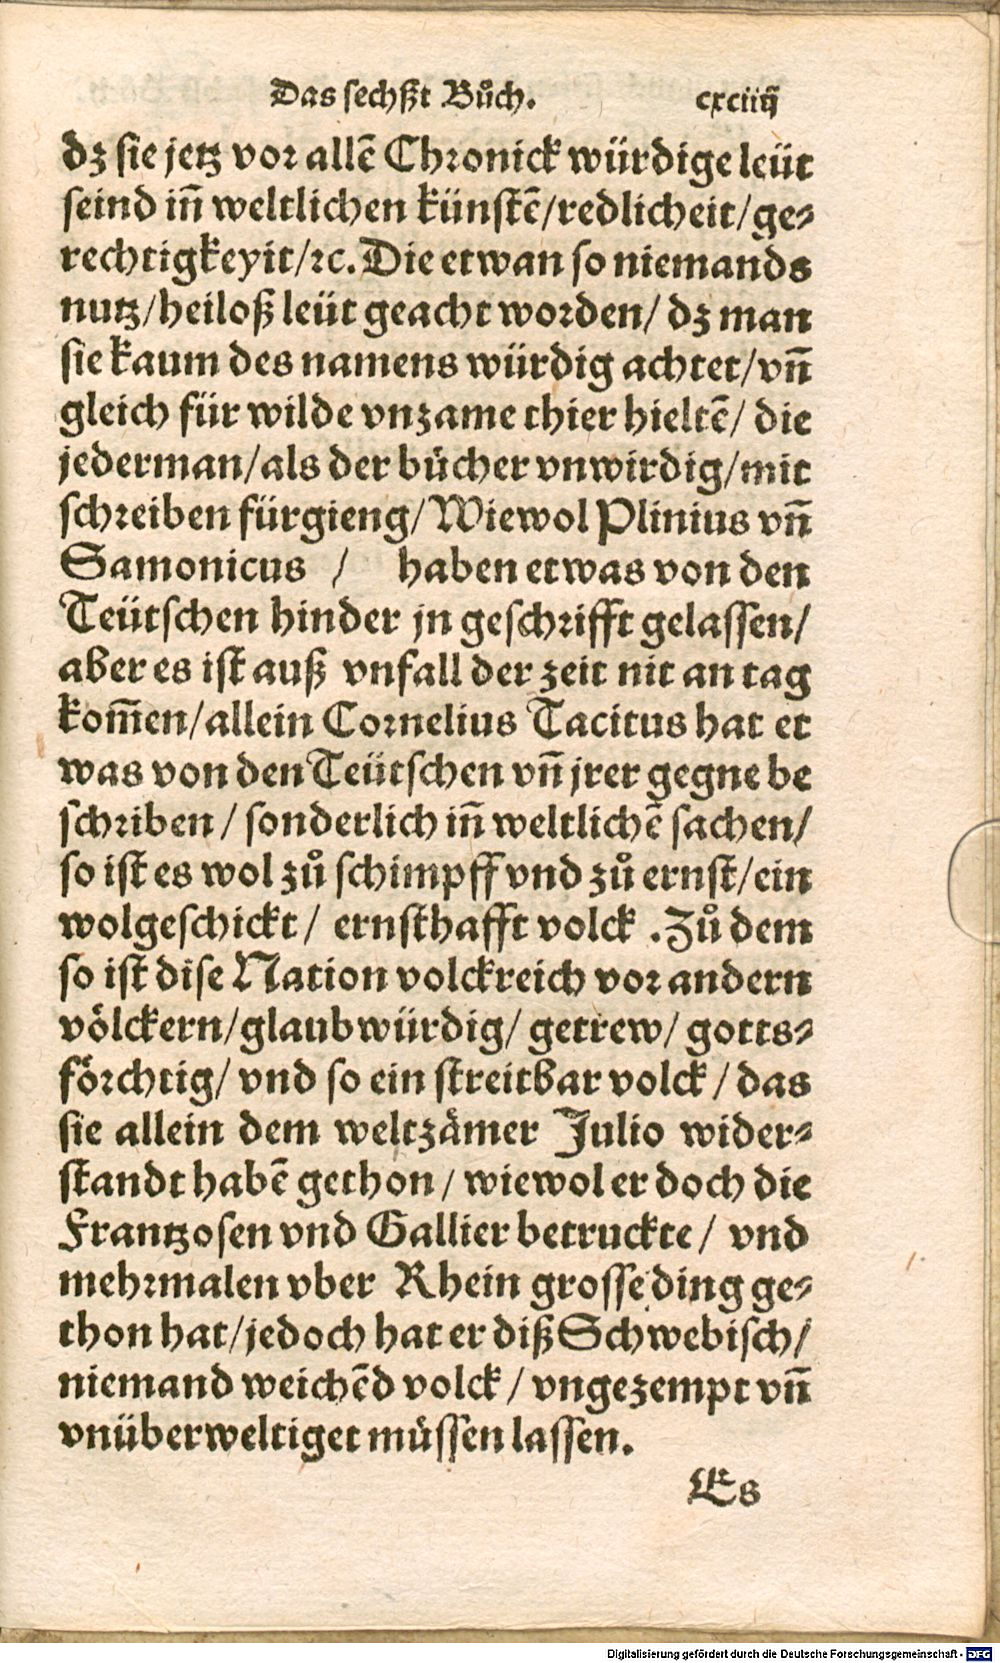 Das sechßt Bůch. cxciiij
dz sie jetz vor allē Chronick würdige leüt
seind in̄ weltlichen künstē/redlicheit/ge⸗
rechtigkeyit/ꝛc. Die etwan so niemands
nutz/heiloß leüt geacht worden/ dz man
sie kaum des namens würdig achtet/vn̄
gleich für wilde vnzame thier hieltē/ die
jederman/als der bücher vnwirdig/mit
schreiben fürgieng/ Wiewol Plinius vn̄
Samonicus / haben etwas von den
Teütschen hinder jn geschrifft gelassen/
aber es ist auß vnfall der zeit nit an tag
kom̄en/allein Cornelius Tacitus hat et
was von den Teütschen vn̄ jrer gegne be
schriben/ sonderlich in̄ weltlichē sachen/
so ist es wol zů schimpff vnd zů ernst/ein
wolgeschickt/ ernsthafft volck .Zů dem
so ist dise Nation volckreich vor andern
völckern/glaubwürdig/ getrew/ gotts⸗
förchtig/ vnd so ein streitbar volck/ das
sie allein dem weltzämer Julio wider⸗
standt habē gethon/ wiewol er doch die
Frantzosen vnd Gallier betruckte/ vnd
mehrmalen vber Rhein grosse ding ge⸗
thon hat/jedoch hat er diß Schwebisch/
niemand weichēd volck/ vngezempt vn̄
vnüberweltiget müssen lassen.
Es
Digitalisierung gefördert durch die Deutsche Forschungsgemeinschaft - DFG